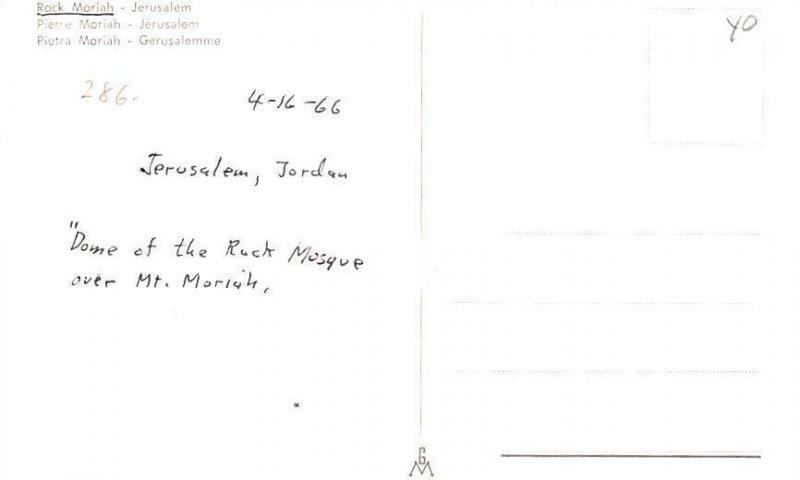 Rock Moriah - Jerusalem
Pierre Moriah - Jérusalem
Pietra Moriah - Gerusalemme
286.
4-16-66
Jerusalem, Jordan
"Dome of the Rock Mosque
over Mt. Moriah,
YO
GM